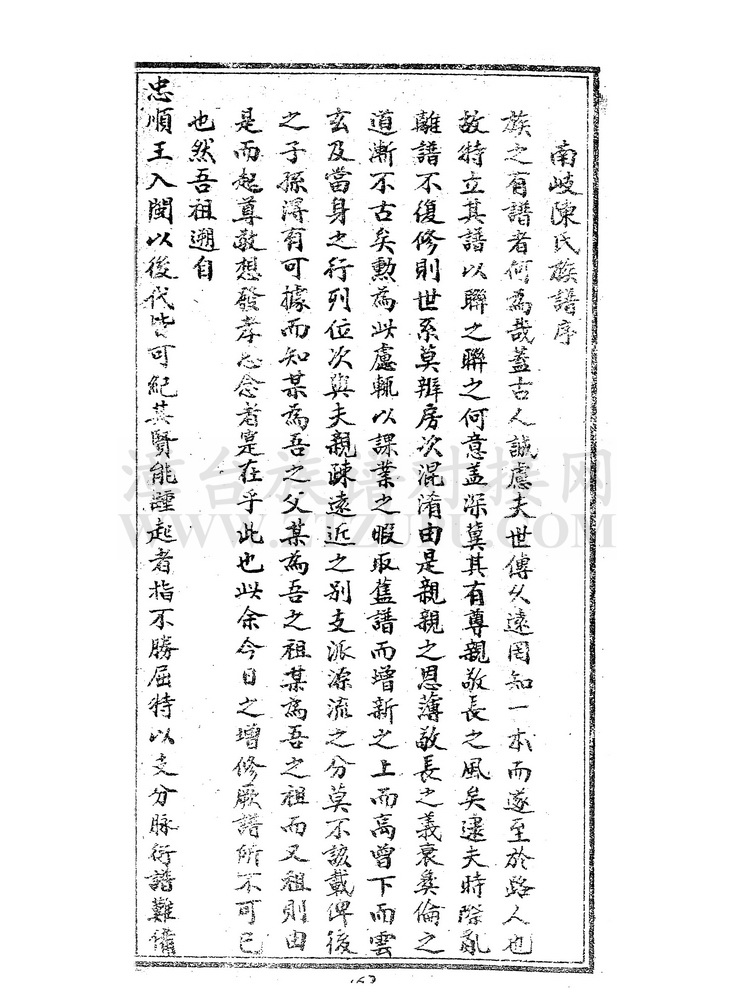 南岐陳氏族譜序
族之有譜者何為哉蓋古人誠慮夫世傳久遠罔知一本而遂至於路人也
故特立其譜以聯之聯之何意盖深冀其有尊親敬長之風矣逮夫時際亂
離譜不復修則世系莫辨房次混淆由是親親之恩薄敬長之義衰彜倫之
道漸不古矣勲為此慮輒以課業之暇取舊譜而增新之上而高曾下而雲
玄及當身之行列位次與夫親疎遠近之别支派源流之分莫不該載俾後
之子孫得有可據而知某為吾之父某為吾之祖某為吾之祖而又祖則由
是而起尊敬想發孝思念者寔在乎此也此余今日之增修厥譜所不可已
也然吾祖遡自
忠順王入閩以後代皆可紀其賢能踵起者指不勝屈特以支分脉衍譜難備
漳台族谱对接网
WWW.ZTZUPU.COM